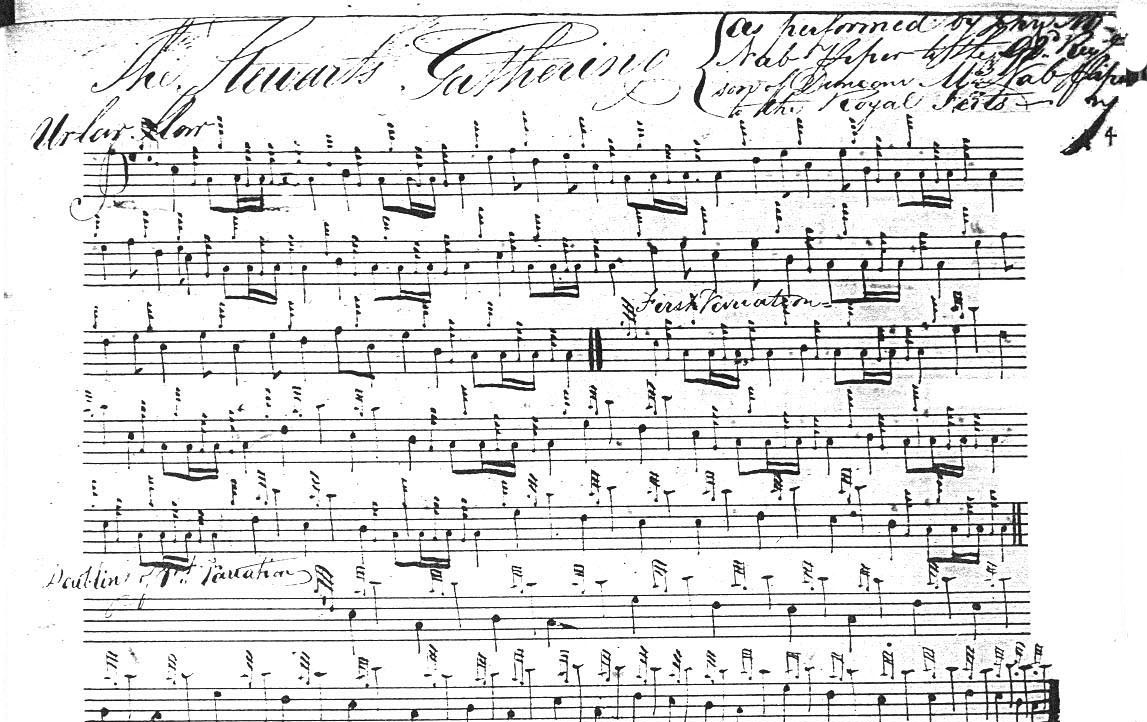 The Stewarts Gathering
as performed by John Mc
Nab Piper to the Regt
son of Duncan Mc Nab Piper
to the Royal Feits
4
Urlar Slow
First Variation
Doubling of 1st Variation